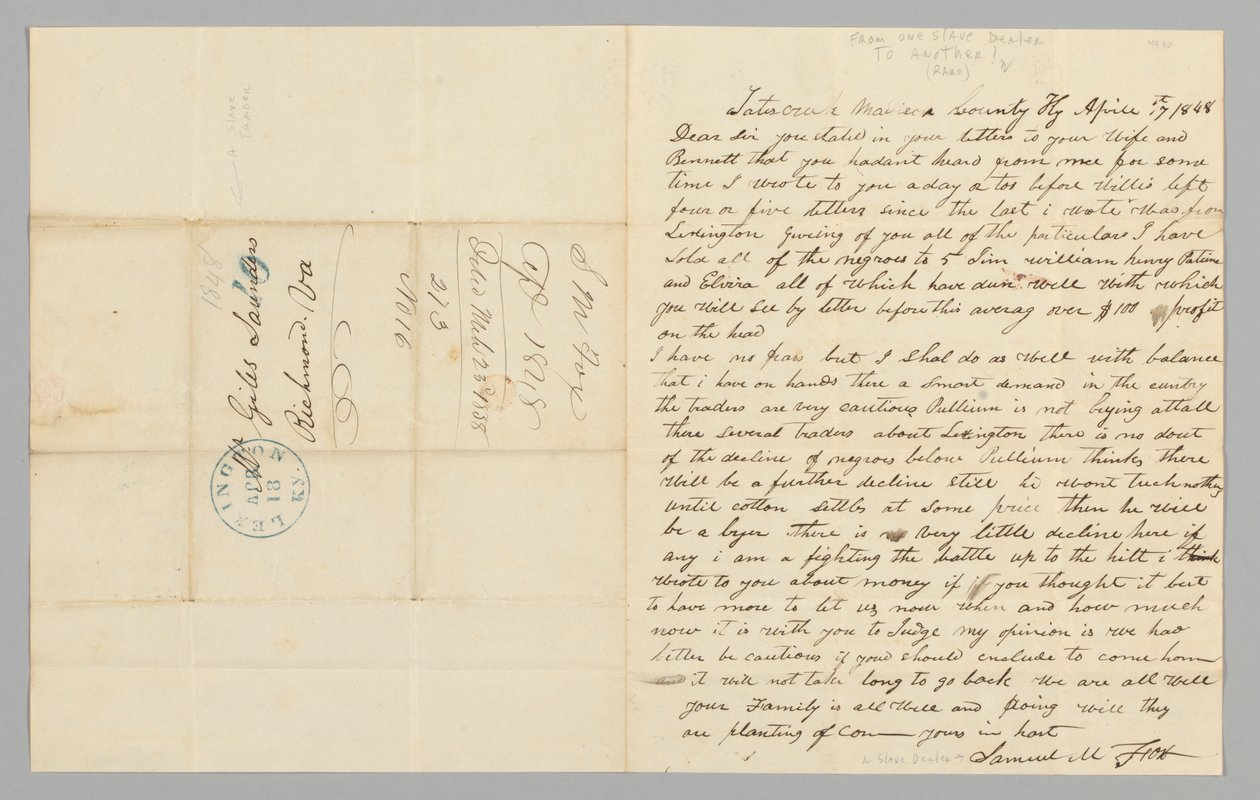 From one Slave Dealer
To Another!
(RARE)
4930
Tates creek Madison County Ky Aprile 17th 1848
Dear Sir you stated in your letters to your Wife and
Bennett that you hadant heard from mee for some
time I wrote to you a day or tos before Willis left
four or five letters since the last i wrote was from
Lexington giveing of you all of the particulars I have
Sold all of the negroes to 5 Jim william henry
and Elvira all of which have dun well with which
you will see by letter before this averag over $100 profit
on the head
I have no fear but I shal do as well with balance
that i have on hands there a smart demand in the cuntry
the traders are very cautious Pullium is not buying attall
there several traders about Lexington there is no dout
of the decline of negroes below Pullium thinks there
will be a further decline still he wont tuch nothing
until cotton settles at some price then he will
be a byer there is very little decline here if
any i am a fighting the battle up to the hilt i think
wrote to you about money if you thought it best
to have more to let us now when and how much
now it is with you to Judge my opinion is we had
better be cautious if you should conclude to come hom
and it will not take long to go back we are all well
your Family is all well and doing well they
are planting of corn yours in hast
A Slave Dealer → Samuel M Fox
← A Slave
Trader
1848
10
Giles Saunders
Richmond. Va
LEXINGTON KY.
APR
18
No 16
273
S M Fox